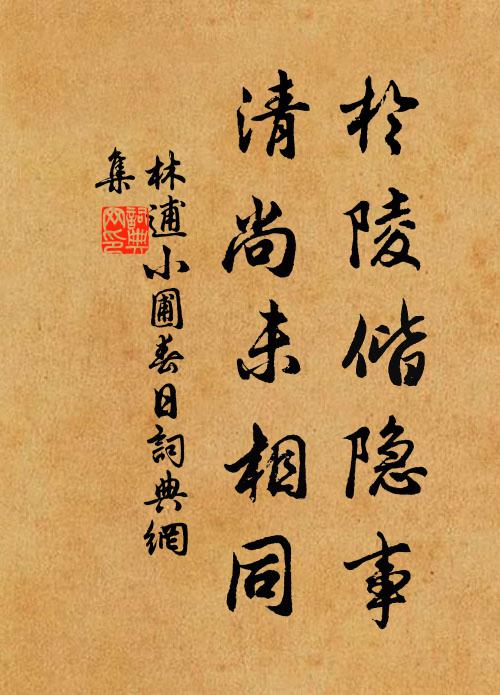 於陵偕隐事
清尚未相同
林逋小圃春日詞典網
集
詞典
网印